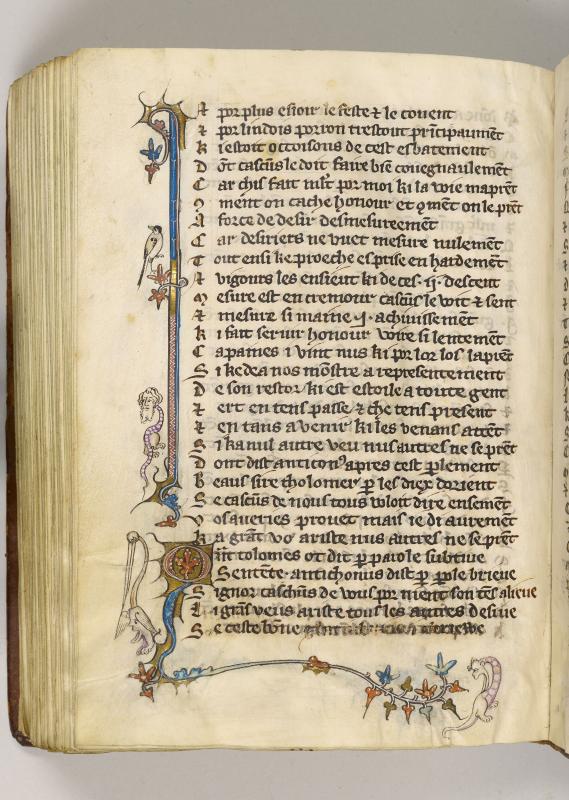 ⁊ por plus esioir le feste ⁊ le couent
⁊ por lindois porron trestout p̃ncipaumẽt
K i estoit occoisons de cest esbatement
D õt cascũs le doit faire biẽ
C ar chis fait por moi ki la uoie maprẽt
ment on cache honour et ꝯmẽt on le prẽt
A force de desir desmesureemẽt
C ar desiriers ne vuet mesure nulemẽt
T out ensi ke proeche esprise en hardemẽt
⁊ vigours les ensient ki de ces .ij. descent
M esure est en cremour cascũs le voit ⁊ sent
⁊ mesure si maine .j. achiuissemẽt
K i fait seruir honour voire si lentemẽt
C apaines i vint nus ki por lor los laprẽt
S i ke dea nos mõstre a representement
D e son restor ki est estoile a toute gent
⁊ ert en tens passe ⁊ the tens present
⁊ en tans a venir ki les venans atẽt
S i ka nul autre veu nus autres ne se prẽt
D ont dist anticon⁹ apres cest ꝑlement
B eaus sire tholomer ꝑ les diex dorient
S e cascũs de nous tous voloit dire ensement
V os aueries prouet mais ie di autrement
K a grãt vo ariste nus autres ne se prẽt
tolomes ot dit ꝑ parole subtiue
Sentẽte. antichonus dist ꝑ ꝑole brieue
S ignor caschũs de vous por niẽt son tẽs alieue
L i grãs veus ariste tous les autres desiue
S e ceste bõne